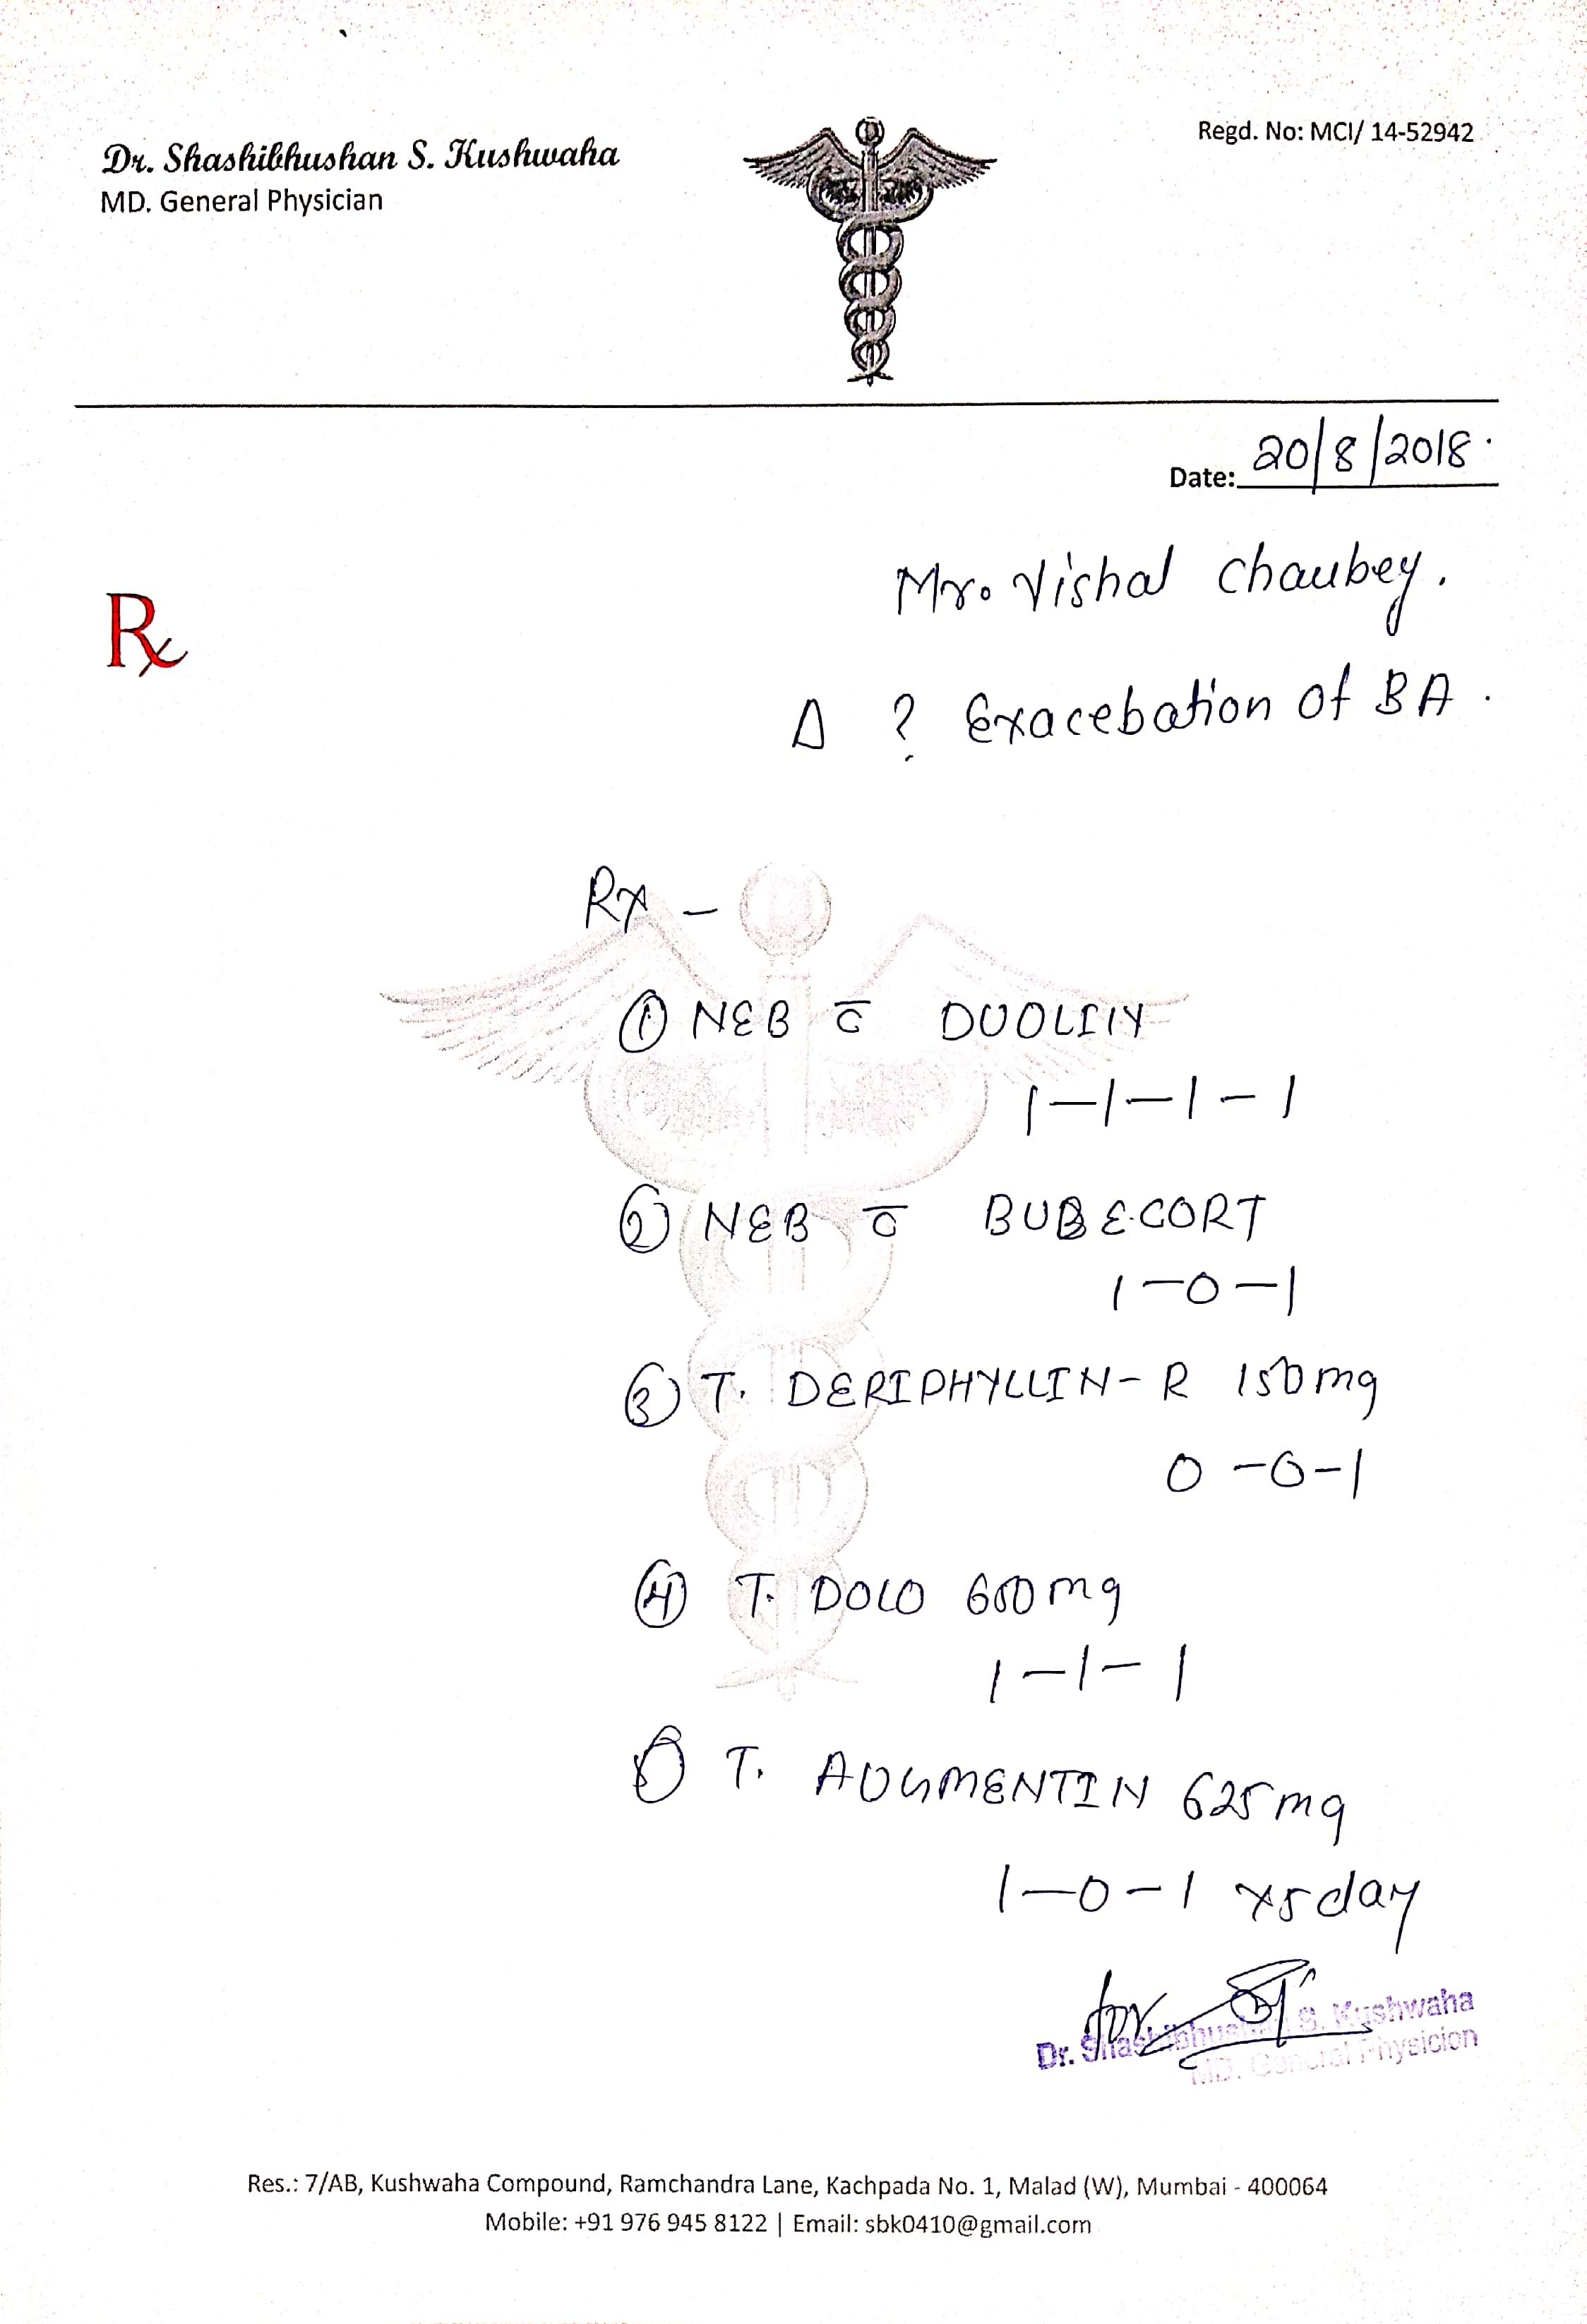 Dr. Shashibhushan S. Kushwaha
MD. General Physician
Regd. No: MCI/ 14-52942
Date: 20/8/2018.
Rx
Mr. Vishal Chaubey.
Δ ? Exacebation of BA.
Rx -
① NEB c̄ DUOLIN
1-1-1-1
② NEB c̄ BUDECORT
1-0-1
③ T. DERIPHYLLIN-R 150mg
0-0-1
④ T. DOLO 650mg
1-1-1
⑤ T. AUGMENTIN 625mg
1-0-1 x5day
for
Dr. Shashibhushan S. Kushwaha
MD. General Physicion
Res.: 7/AB, Kushwaha Compound, Ramchandra Lane, Kachpada No. 1, Malad (W), Mumbai - 400064
Mobile: +91 976 945 8122 | Email: sbk0410@gmail.com